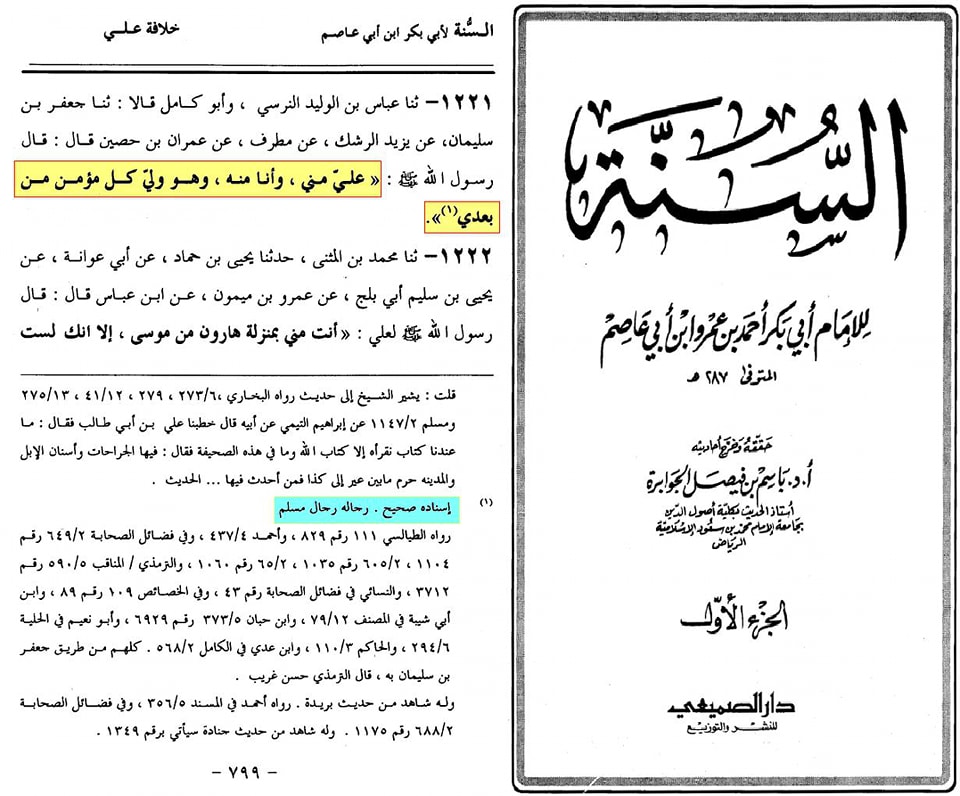 السُّنة لأبي بكر ابن أبي عاصم خلافة علـــي
١٢٢١– ثنا عباس بن الوليد النرسي ، وأبو كامل قالا : ثنا جعفر بن
سليمان، عن يزيد الرشك ، عن مطرف، عن عمران بن حصين قال : قال
رسول الله ﷺ : « عليّ مني ، وأنا منه ، وهو وليّ كل مؤمن من
بعدي(١)».
١٢٢٢– ثنا محمد بن المثنى ، حدثنا يحيى بن حماد ، عن أبي عوانة ، عن
يحيى بن سليم أبي بلج ، عن عمرو بن ميمون ، عن ابن عباس قال : قال
رسول الله ﷺ لعلي : «أنت مني بمنزلة هارون من موسى ، إلا انك لست
قلت : يشير الشيخ إلى حديث رواه البخاري ،٢٧٣/٦ ، ٢٧٩ ، ٤١/١٢ ، ٢٧٥/١٣
ومسلم ١١٤٧/٢ عن إبراهيم التيمي عن أبيه قال خطبنا علي بن أبي طالب فقال : ما
عندنا كتاب نقرأه إلا كتاب الله وما في هذه الصحيفة فقال : فيها الجراحات وأسنان الإبل
والمدينه حرم مابين عير إلى كذا فمن أحدث فيها ... الحديث .
(١) إسناده صحيح . رجاله رجال مسلم
رواه الطيالسي ١١١ رقم ٨٢٩ ، وأحمد ٤٣٧/٤ ، وفي فضائل الصحابة ٦٤٩/٢ رقم
١١٠٤ ، ٦٠٥/٢ رقم ١٠٣٥ ، ٦٥/٢ رقم ١٠٦٠ ، والترمذي / المناقب ٥٩٠/٥ رقم
٣٧١٢ ، والنسائي في فضائل الصحابة رقم ٤٣ ، وفي الخصائص ١٠٩ رقم ٨٩ ، وابن
أبي شيبة في المصنف ٧٩/١٢ ، وابن حبان ٣٧٣/٥ رقم ٦٩٢٩ ، وأبو نعيم في الحلية
٢٩٤/٦ ، والحاكم ١١٠/٣ ، وابن عدي في الكامل ٥٦٨/٢ . كلهم من طريق جعفر
بن سليمان به ، قال الترمذي حسن غريب .
وله شاهد من حديث بريدة . رواه أحمد في المسند ٣٥٦/٥ ، وفي فضائل الصحابة
٦٨٨/٢ رقم ١١٧٥ . وله شاهد من حديث جنادة سيأتي برقم ١٣٤٩ .
– ٧٩٩ –
السُّنَّة
للإمام أبي بكر أحمد بن عمرو ابن أبي عاصم
المتوفى ٢٨٧ هـ
حققه وخرج أحاديثه
أ.د. باسم بن فيصل الجوابرة
أستاذ الحديث بكلية أصول الدين
بجامعة الإمام محمد بن سعود الإسلامية
الرياض
الجزء الأول
دار الصميعي
للنشر والتوزيع